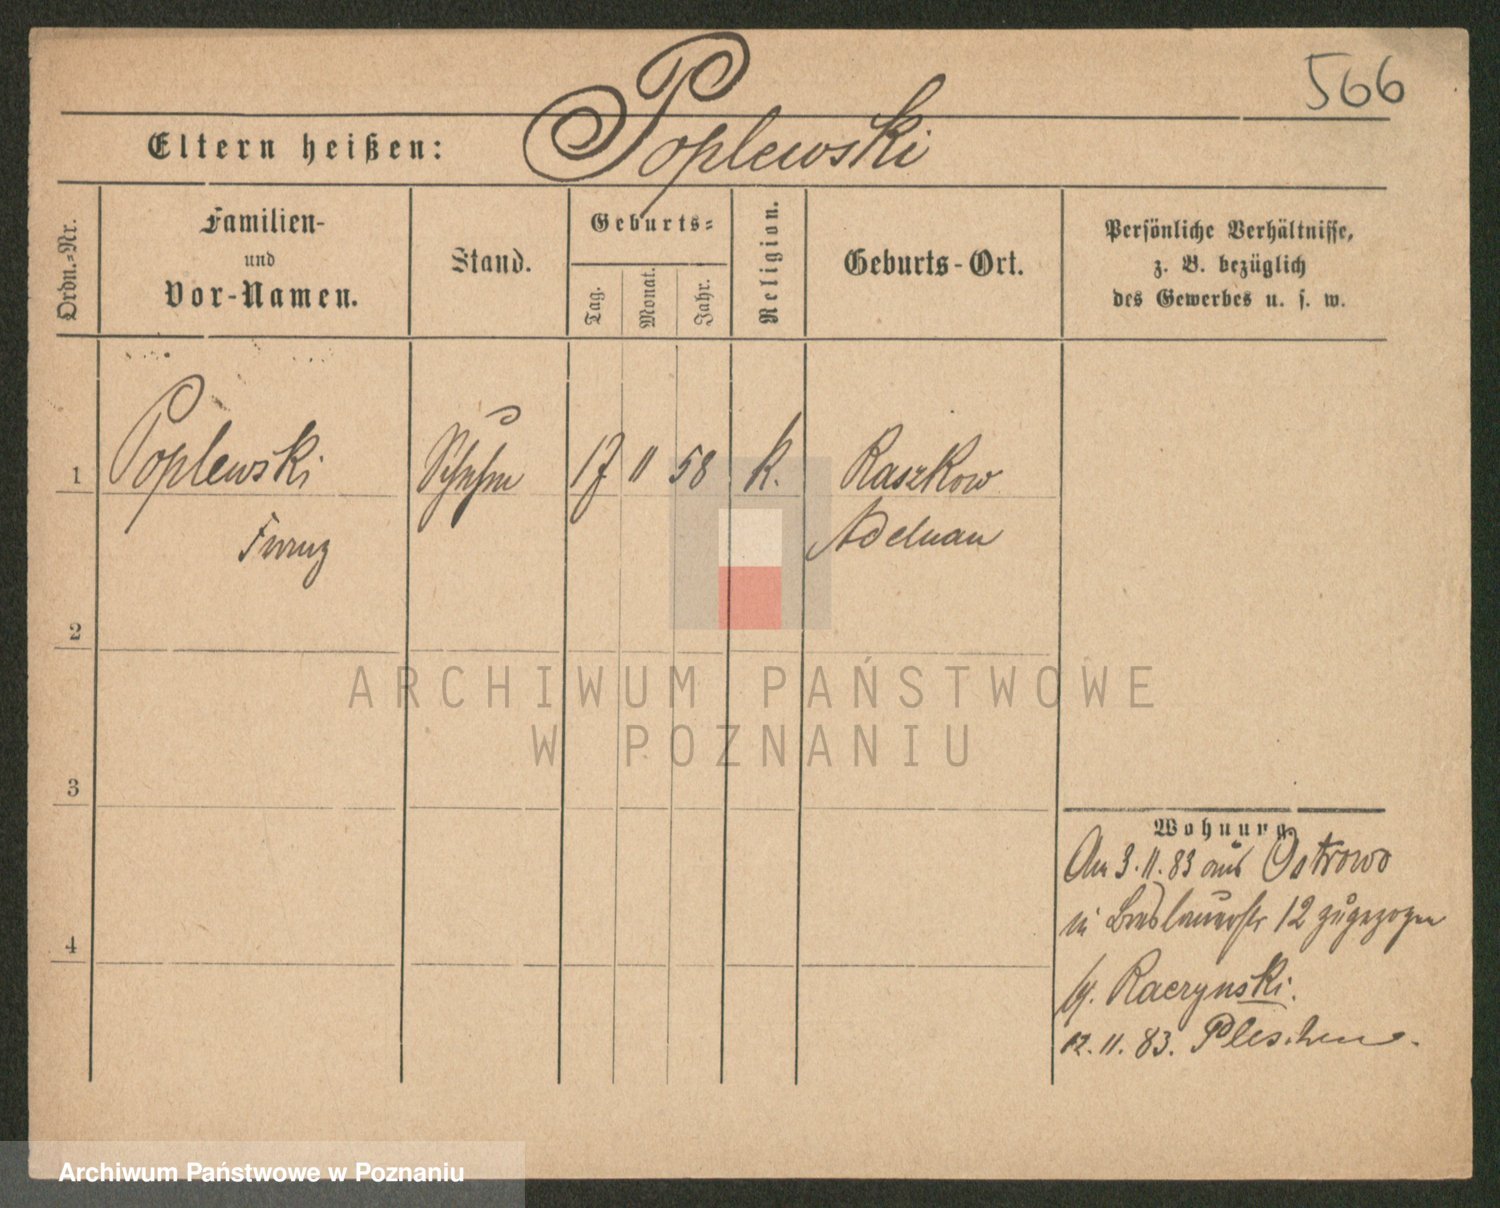 566
Eltern heißen: Poplewski
Ordn.-Nr.
Familien-
und
Vor-Namen.
Stand.
Geburts-
Tag.
Monat.
Jahr.
Religion.
Geburts-Ort.
Persönliche Verhältnisse,
z. B. bezüglich
des Gewerbes u. s. w.
1 Poplewski 17 11 58 k. Raszkow
Franz Adelnau
2
3
4
ARCHIWUM PAŃSTWOWE
W POZNANIU
Wohnung.
Am 3.11.83 aus Ostrowo
in Breslauerstr 12 zugezogen
Raczynski.
12.11.83. Pleschen.
Archiwum Państwowe w Poznaniu